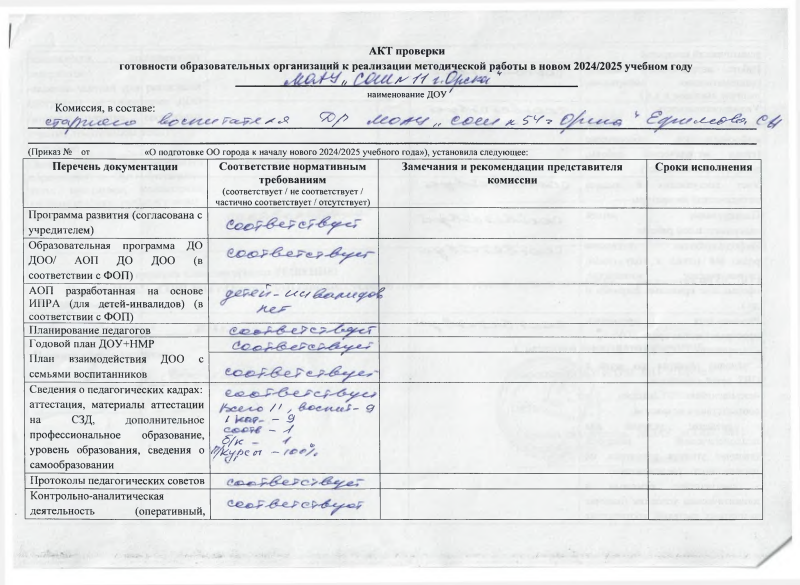 АКТ проверки
готовности образовательных организаций к реализации методической работы в новом 2024/2025 учебном году
МОАУ „СОШ № 11 г. Орска"
наименование ДОУ
Комиссия, в составе:
старшего воспитателя ДО МОАУ „СОШ № 54 г. Орска" Ефимова С.Н
(Приказ № от «О подготовке ОО города к началу нового 2024/2025 учебного года»), установила следующее:
Перечень документации
Соответствие нормативным
требованиям
(соответствует / не соответствует /
частично соответствует / отсутствует)
Замечания и рекомендации представителя
комиссии
Сроки исполнения
Программа развития (согласована с
учредителем)
соответствует
Образовательная программа ДО
ДОО/ АОП ДО ДОО (в
соответствии с ФОП)
соответствует
АОП разработанная на основе
ИПРА (для детей-инвалидов) (в
соответствии с ФОП)
детей-инвалидов
нет
Планирование педагогов
соответствует
Годовой план ДОУ+НМР
соответствует
План взаимодействия ДОО с
семьями воспитанников
соответствует
Сведения о педагогических кадрах:
аттестация, материалы аттестации
на СЗД, дополнительное
профессиональное образование,
уровень образования, сведения о
самообразовании
соответствует
Всего 11, воспит - 9
1 кат. - 9
соотв - 1
б/к - 1
П/курсы - 100%
Протоколы педагогических советов
соответствует
Контрольно-аналитическая
деятельность (оперативный,
соответствует